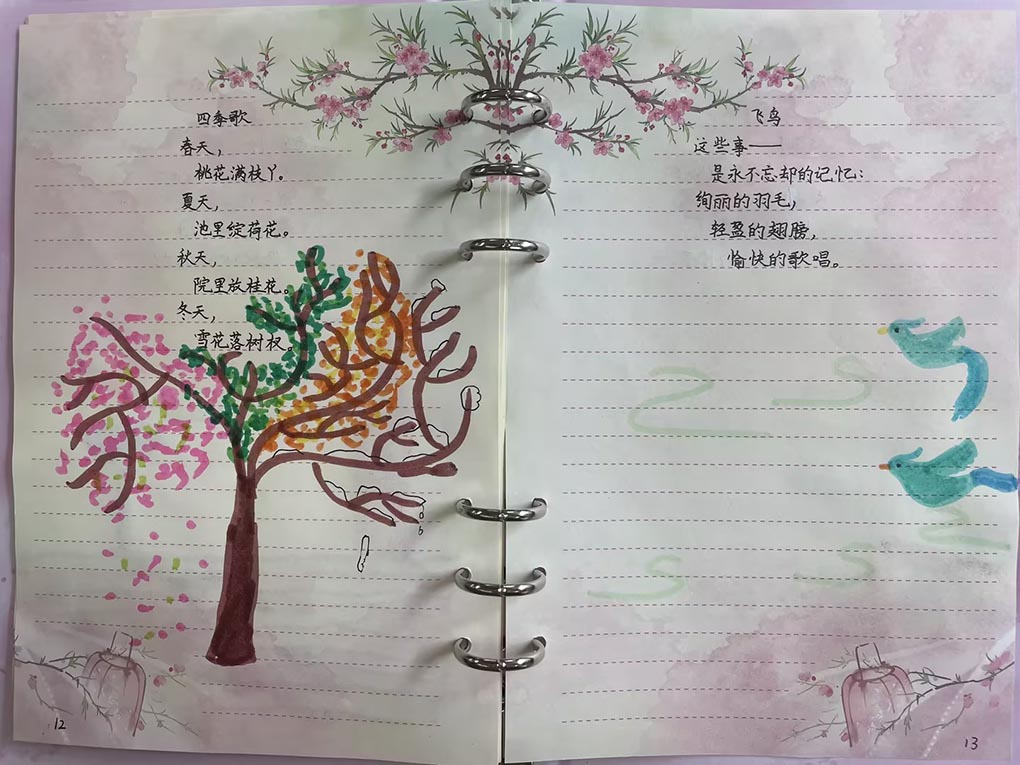 四季歌
春天，
桃花满枝丫。
夏天，
池里绽荷花。
秋天，
院里放桂花。
冬天，
雪花落树杈。
12
飞鸟
这些事——
是永不忘却的记忆：
绚丽的羽毛，
轻盈的翅膀，
愉快的歌唱。
13